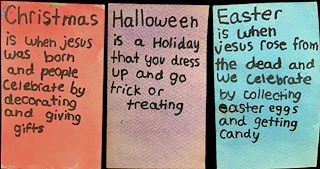 Christmas
is when jesus
was born
and people
celebrate by
decorating
and giving
gifts
Halloween
is a Holiday
that you dress
up and go
trick or
treating
Easter
is when
jesus rose from
the dead and
we celebrate
by collecting
easter eggs
and getting
candy